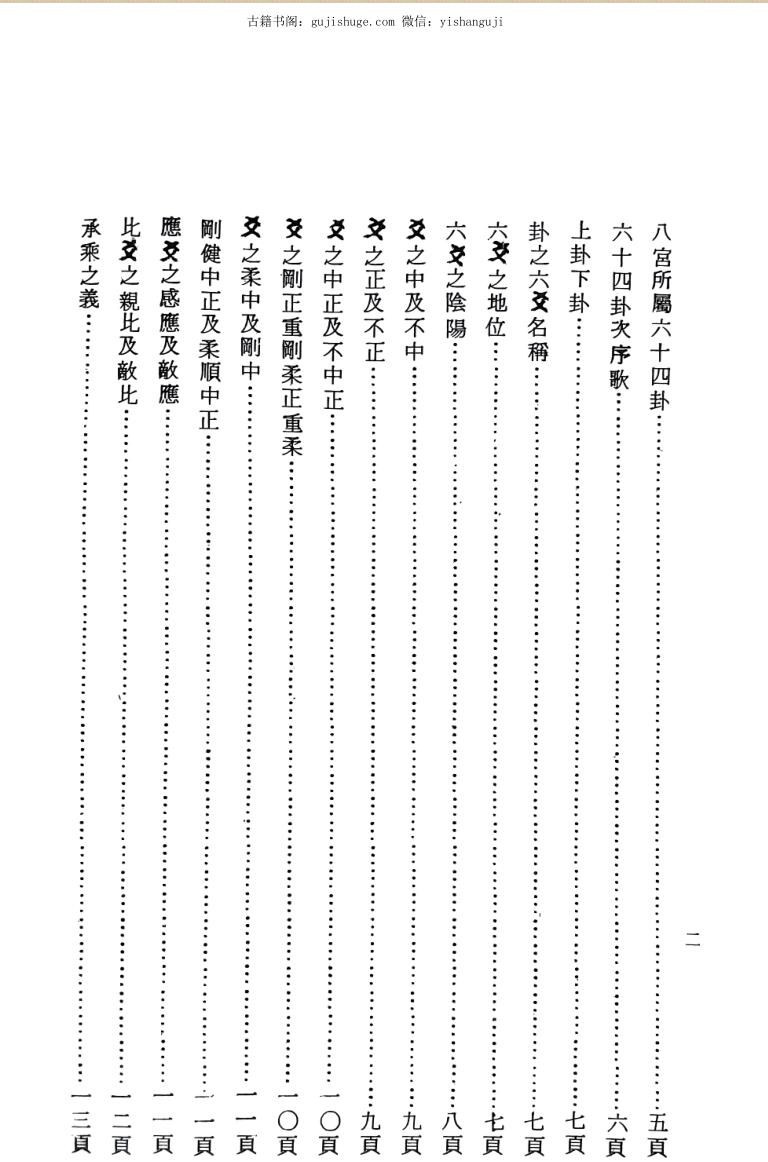 古籍书阁：gujishuge.com 微信：yishanguji
二
八宮所屬六十四卦……五頁
六十四卦次序歌……六頁
上卦下卦……七頁
卦之六爻名稱……七頁
六爻之地位……七頁
六爻之陰陽……八頁
爻之中及不中……九頁
爻之正及不正……九頁
爻之中正及不中正……一〇頁
爻之剛正重剛柔正重柔……一〇頁
爻之柔中及剛中……一一頁
剛健中正及柔順中正……一一頁
應爻之感應及敵應……一一頁
比爻之親比及敵比……一二頁
承乘之義……一三頁